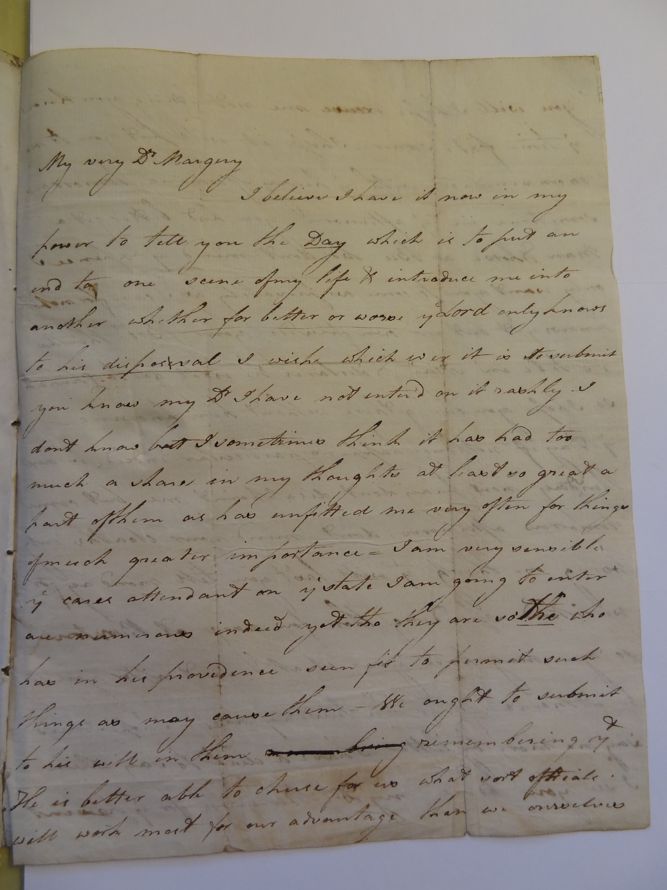 My very Dr. Margery
I believe I have it now in my
power to tell you the Day which is to put an
end to one scene of my life & introduce me into
another whether for better or worse ye Lord only knows
to his disposeval I wish which ever it is to submit
you know my Dr I have not enterd on it rashly I
dont know but I sometimes think it has had too
much a share in my thoughts at least so great a
part of them as has unfitted me very often for things
of much greater importance = I am very sensible
ye cares attendant on ye state I am going to enter
are numerous indeed yet tho they are so the who
has in his providence seen fit to permit such
things as may cause them - We ought to submit
to his will in them remembering yt
He is better able to chuse for us what sort of trials
will work most for our advantage than we ourselves